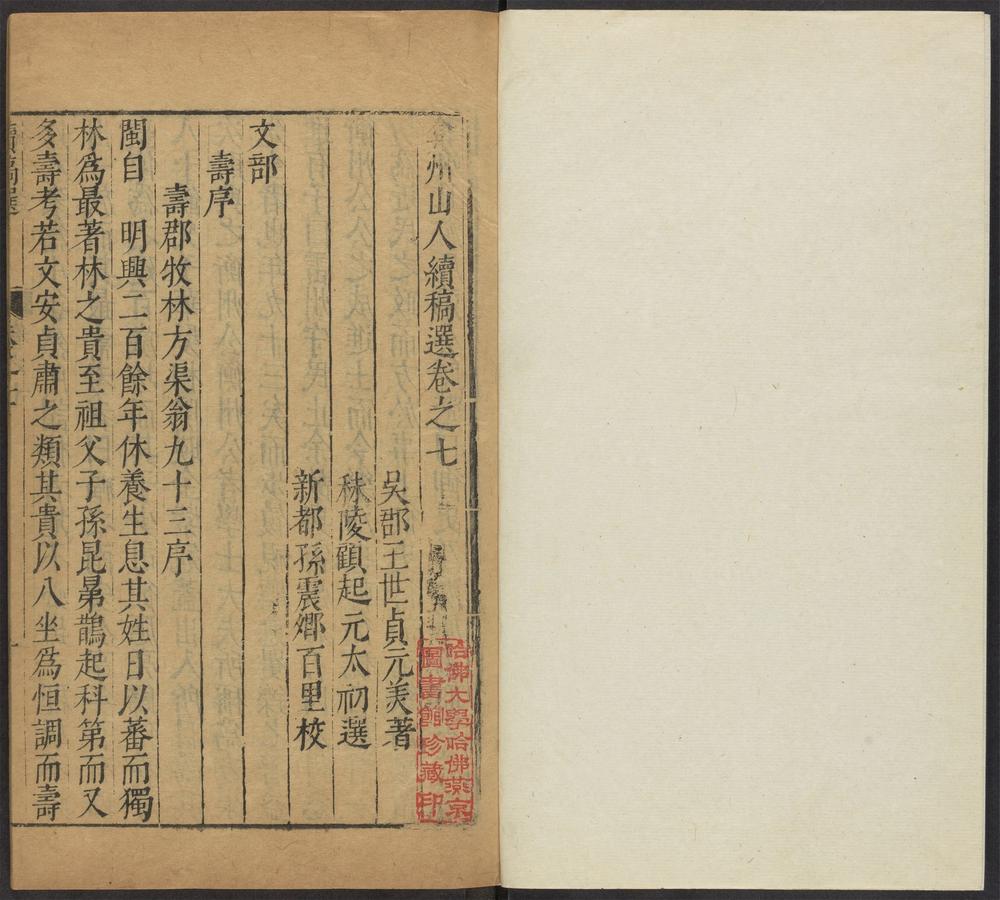 弇州山人續稿選卷之七
吳郡王世貞元美著
秣陵顧起元太初選
新都孫震卿百里校
文部
壽序
壽郡牧林方渠翁九十三序
閩自　明興二百餘年休養生息其姓日以蕃而獨
林爲最著林之貴至祖父子孫昆弟鵲起科第而又
多壽考若文安貞肅之類其貴以八坐爲恒調而壽
哈佛大學哈佛燕京
圖書館珍藏印